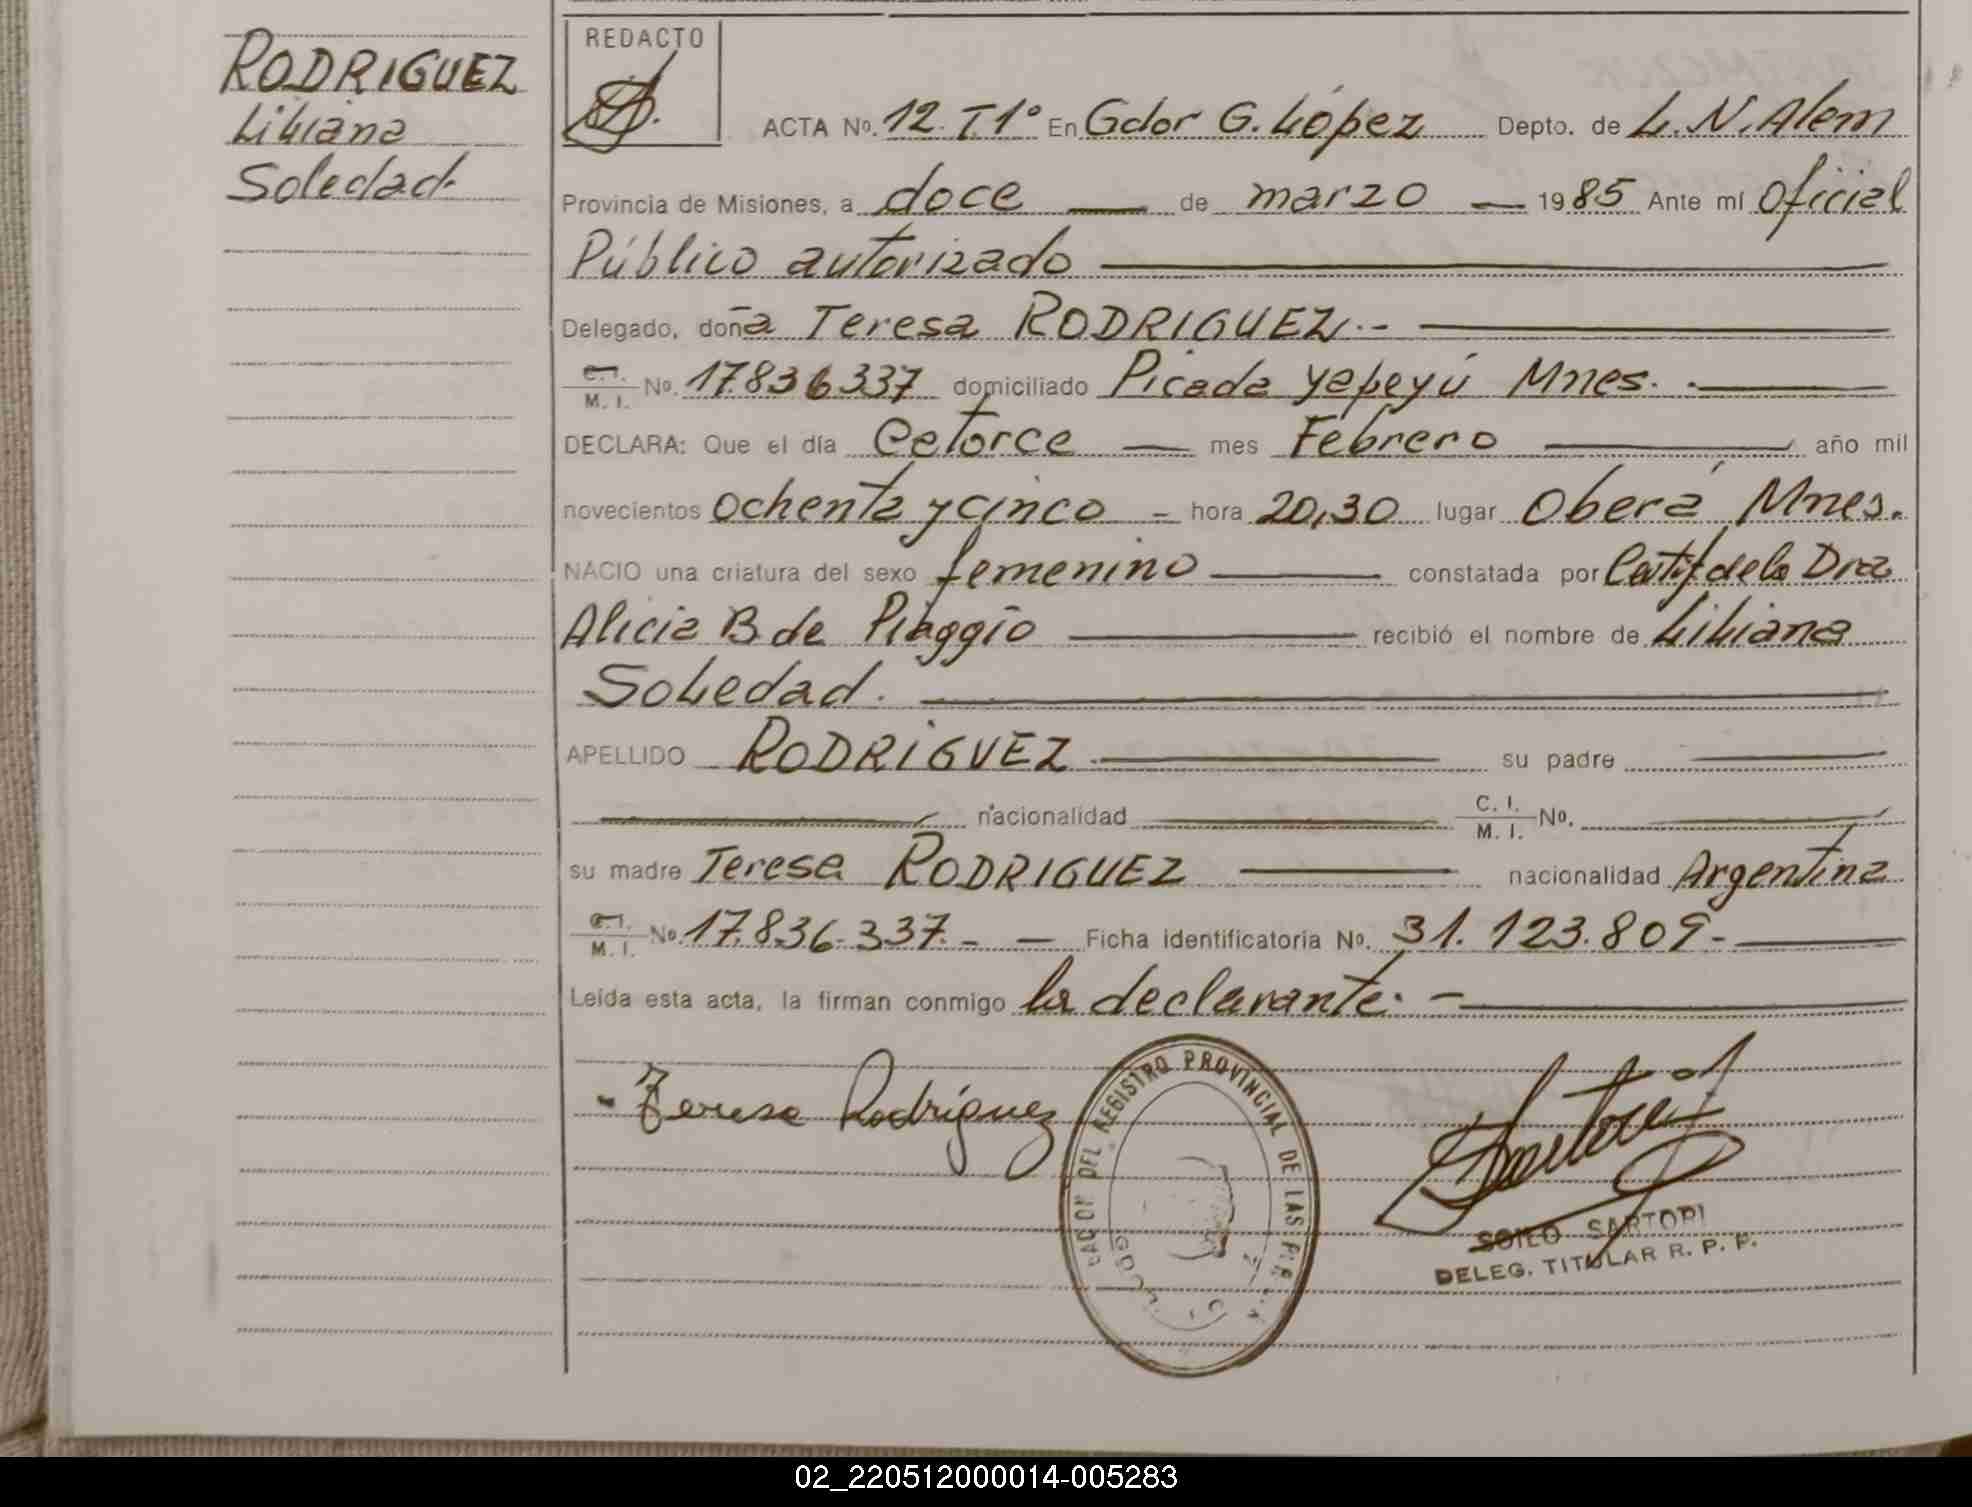 RODRIGUEZ
Liliana
Soledad.
REDACTO
ACTA No. 12 T1° En Gdor G. López Depto. de L. N. Alem
Provincia de Misiones, a doce — de marzo — 1985 Ante mí Oficial
Público autorizado
Delegado, doña Teresa RODRIGUEZ.-
C.I. M. I. No. 17.836337 domiciliado Picada Yapeyú Mnes.
DECLARA: Que el día Catorce — mes Febrero — año mil
novecientos ochenta y cinco - hora 20,30 lugar Oberá Mnes.
NACIO una criatura del sexo femenino — constatada por Certif de la Dra
Alicia B. de Piaggio — recibió el nombre de Liliana
Soledad.
APELLIDO RODRIGUEZ — su padre —
— nacionalidad — C. I. M. I. No. —
su madre Teresa RODRIGUEZ — nacionalidad Argentina
C.I. M. I. No. 17.836.337.- — Ficha identificatoria No. 31.123.809-
Leída esta acta, la firman conmigo la declarante.-
- Teresa Rodriguez
DEL REGISTRO PROVINCIAL DE LAS
SOILO SARTORI
DELEG. TITULAR R. P. P.
02_220512000014-005283